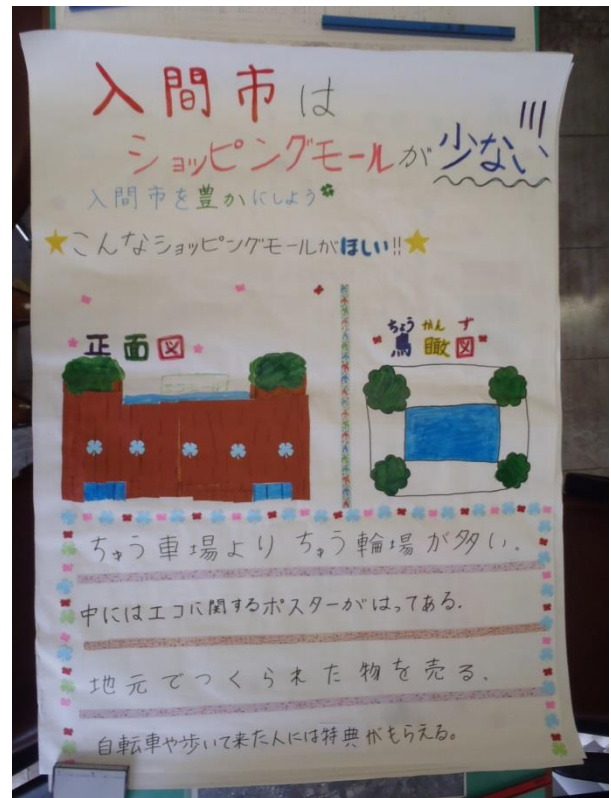 入間市は
ショッピングモールが少ない
入間市を豊かにしよう
こんなショッピングモールがほしい!!
正面図
ちょう かん ず
鳥瞰図
エコモール
ちゅう車場よりちゅう輪場が多い。
中にはエコに関するポスターがはってある。
地元でつくられた物を売る。
自転車や歩いて来た人には特典がもらえる。